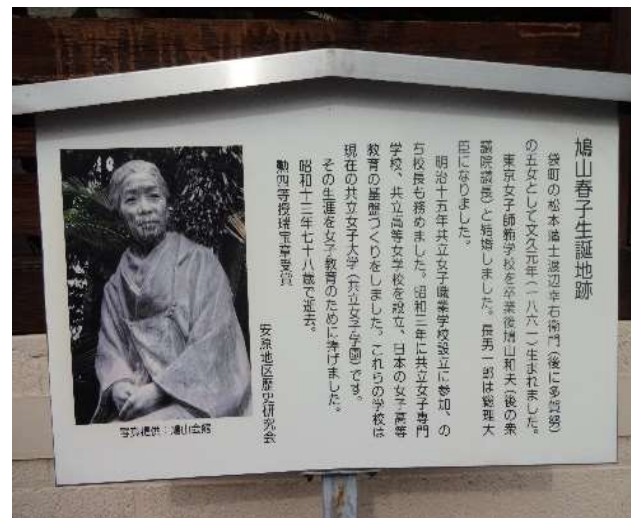 鳩山春子生誕地跡
袋町の松本藩士渡辺幸右衛門(後に多賀努)
の五女として文久元年(一八六一)生まれました。
東京女子師範学校を卒業後鳩山和夫(後の衆
議院議長)と結婚しました。長男一郎は総理大
臣になりました。
明治十五年共立女子職業学校設立に参加、の
ち校長も務めました。昭和三年に共立女子専門
学校、共立高等女学校を設立、日本の女子高等
教育の基盤づくりをしました。これらの学校は
現在の共立女子大学(共立女子学園)です。
その生涯を女子教育のために捧げました。
昭和十三年七十八歳で逝去。
勲四等授瑞宝章受賞
安原地区歴史研究会
写真提供:鳩山会館